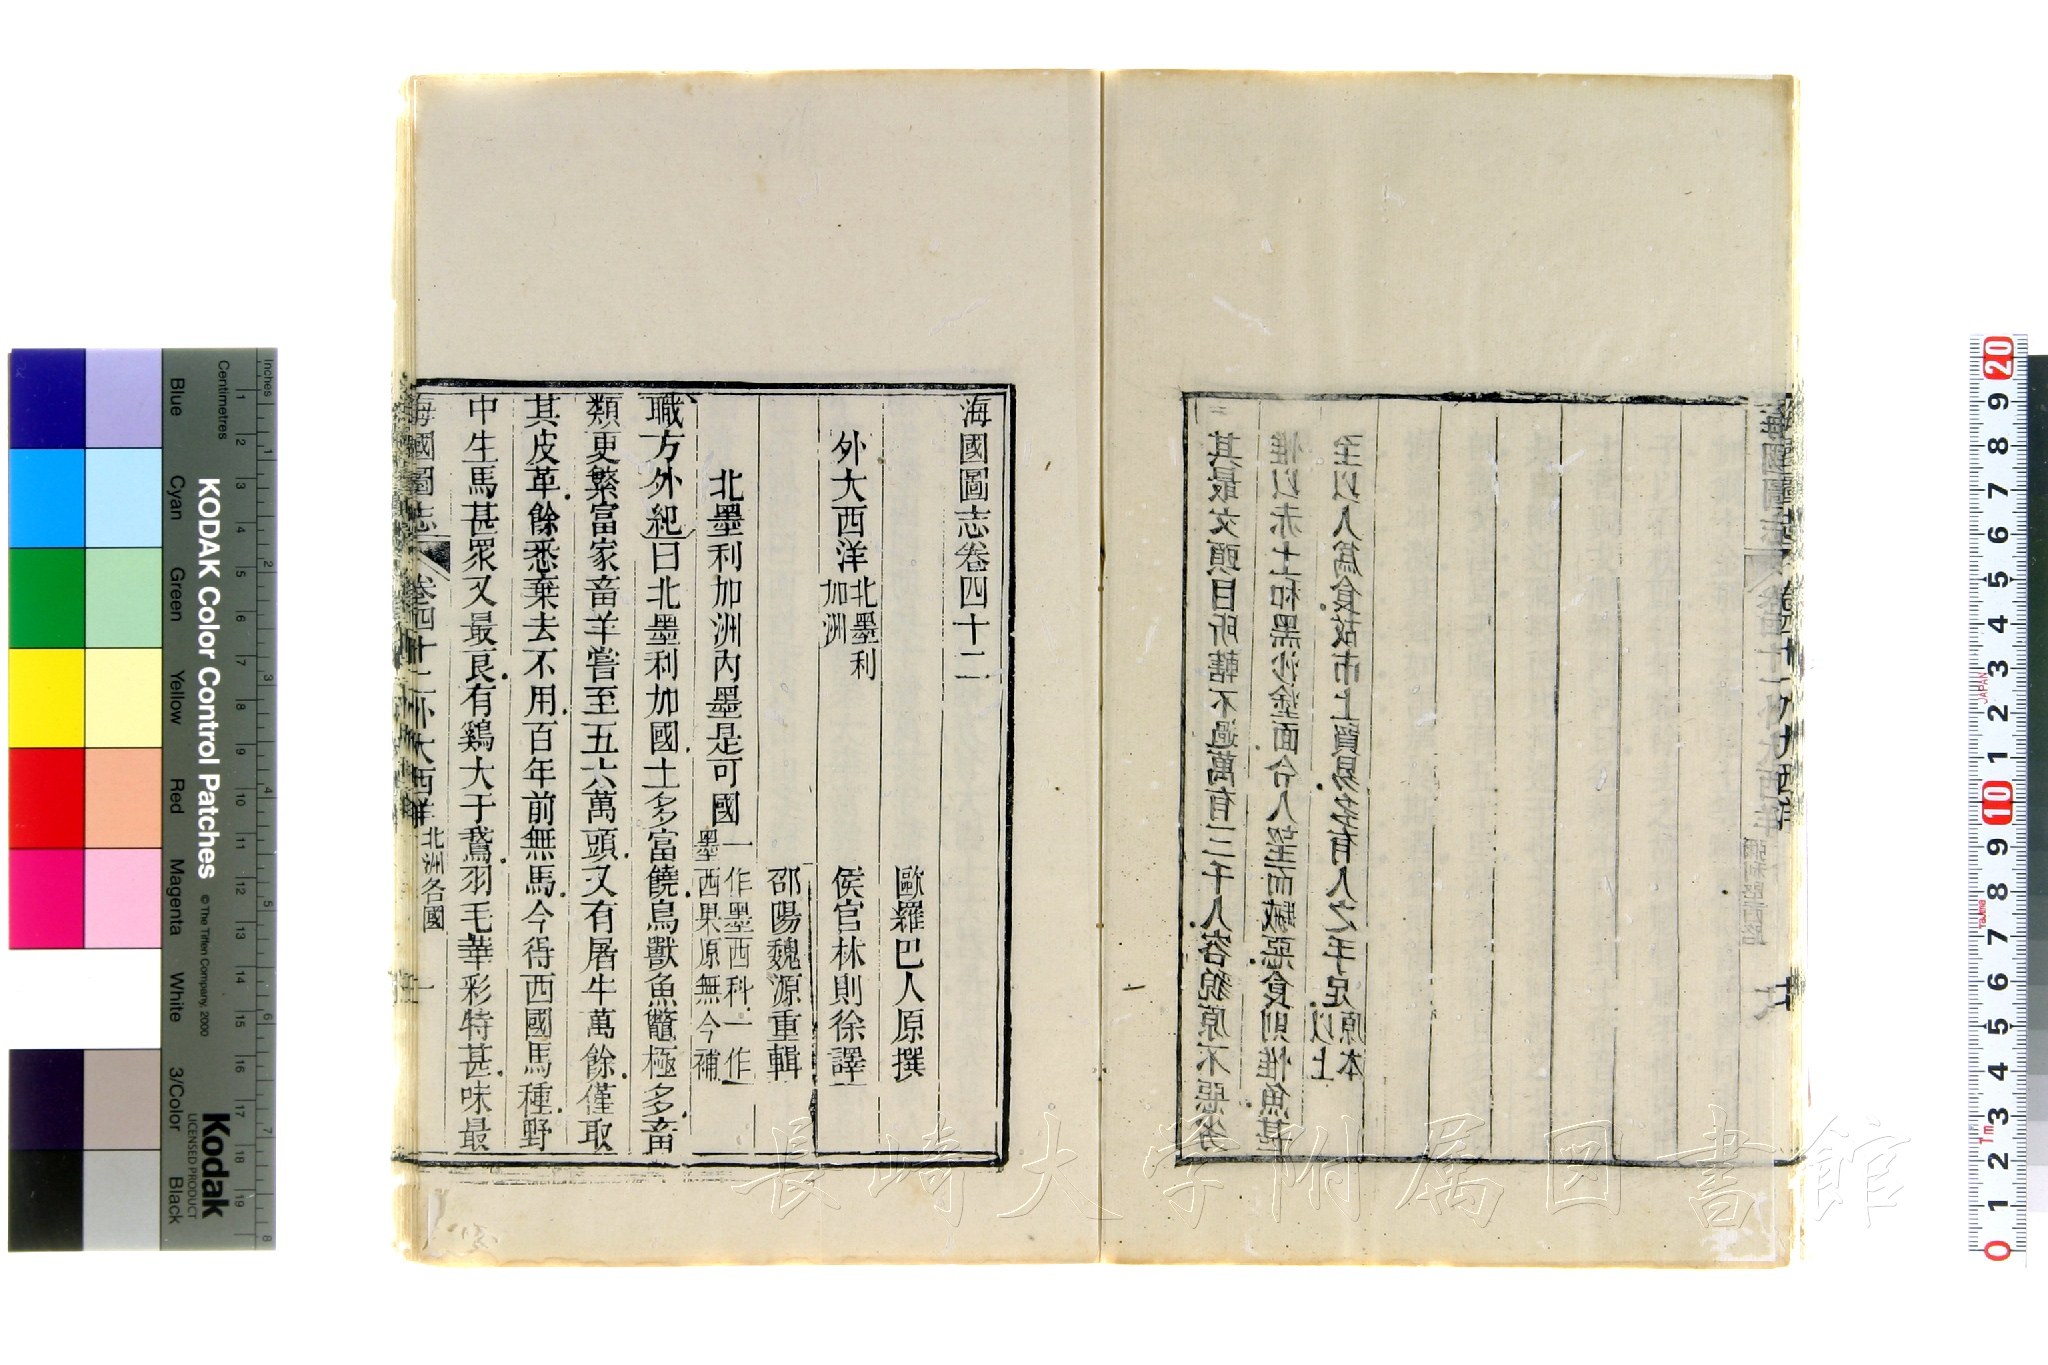 其最文頭目所轄不過萬有三千人容貌原不惡劣
惟以赤土和黑沙塗面令人望而惡食則惟魚甚
至以人爲食故市上貿易多有人之手足以上原本
海國圖志 卷四十一 外大西洋
海國圖志卷四十二
歐羅巴人原撰
侯官林則徐譯
邵陽魏源重輯
外大西洋北墨利加洲
北墨利加洲內墨是可國一作墨西科一作墨西果原無今補
職方外紀曰北墨利加國土多富饒鳥獸魚鼈極多畜
類更繁富家畜羊嘗至五六萬頭又有屠牛萬餘僅取
其皮革餘悉棄去不用百年前無馬今得西國馬種野
中生馬甚眾又最良有鷄大于鵞羽毛華彩特甚味最
海國圖志 卷四十二 外大西洋北洲各國 一
KODAK Color Control Patches
© The Tiffen Company, 2000
Kodak
LICENSED PRODUCT
Inches
Centimetres
Blue
Cyan
Green
Yellow
Red
Magenta
White
3/Color
Black
JAPAN
長崎大学附属図書館